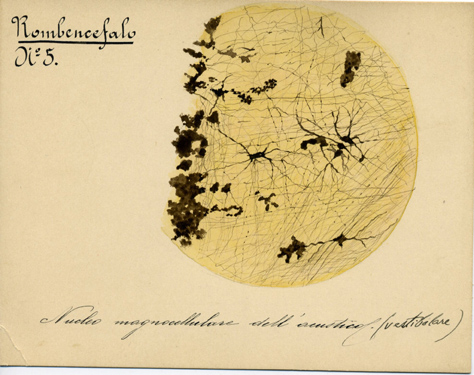 Rombencefalo
Nº 5.
Nucleo magnocellulare dell'acustico. (vestibolare)